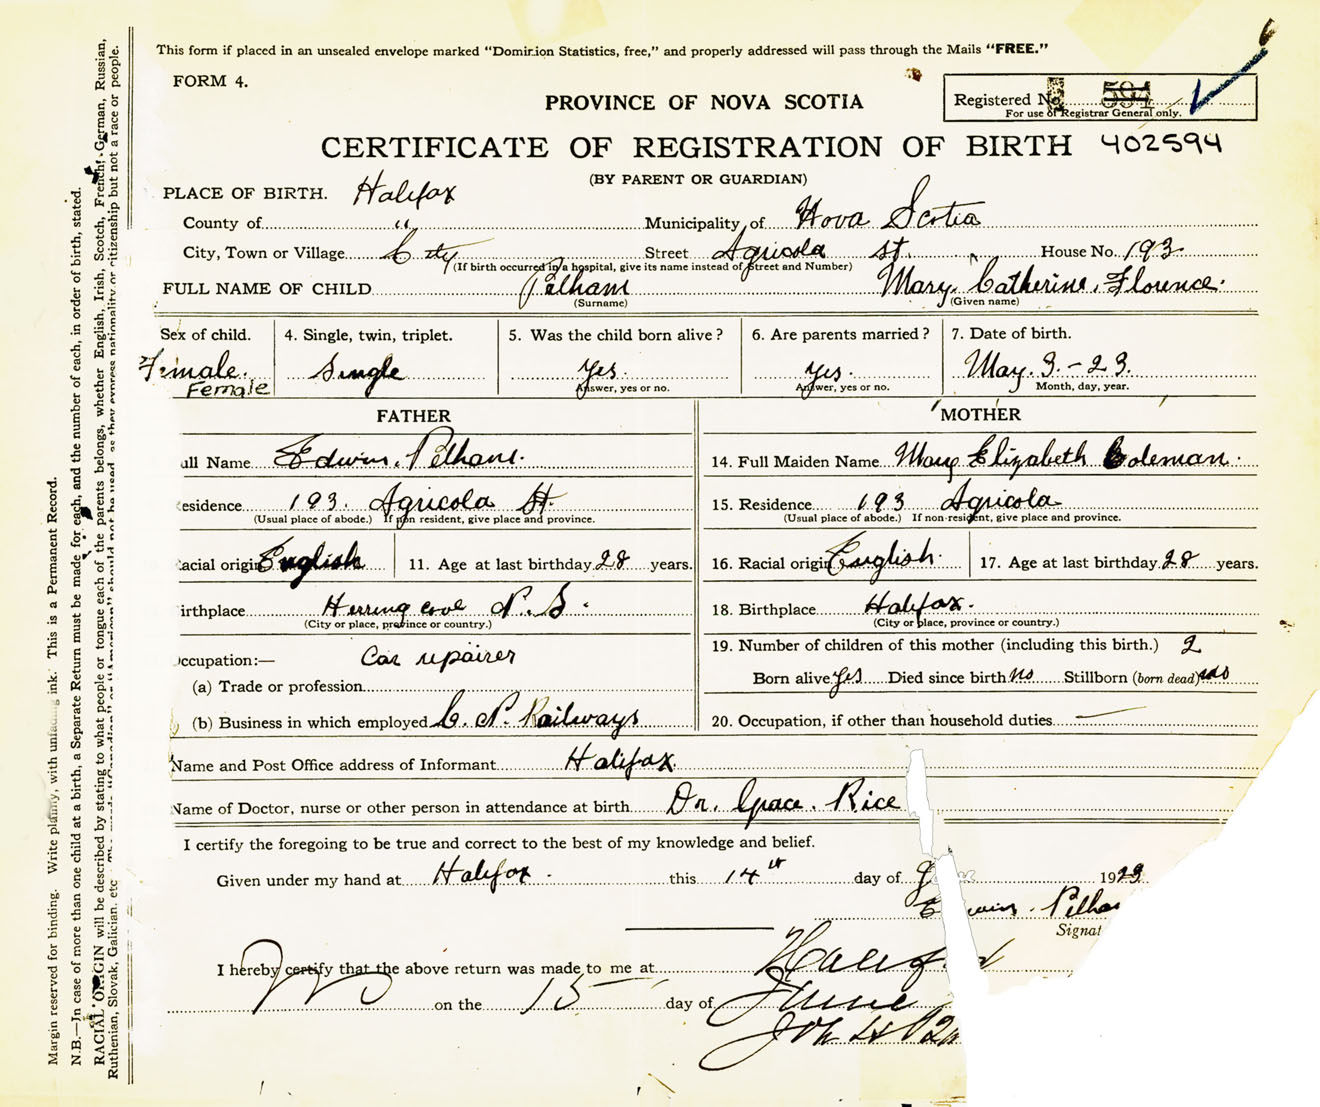 This form if placed in an unsealed envelope marked "Dominion Statistics, free," and properly addressed will pass through the Mails "FREE."
FORM 4.
PROVINCE OF NOVA SCOTIA
Registered No. 594
For use of Registrar General only.
CERTIFICATE OF REGISTRATION OF BIRTH 402594
(BY PARENT OR GUARDIAN)
PLACE OF BIRTH. Halifax
County of " Municipality of Nova Scotia
City, Town or Village City Street Agricola St. House No. 193
(If birth occurred in a hospital, give its name instead of Street and Number)
FULL NAME OF CHILD Pelham Mary Catherine Florence.
(Surname) (Given name)
Sex of child. 4. Single, twin, triplet. 5. Was the child born alive? 6. Are parents married? 7. Date of birth.
Female. Single yes. yes. May. 3. - 23.
Female Answer, yes or no. Answer, yes or no. Month, day, year.
FATHER MOTHER
ull Name Edwin. Pelham. 14. Full Maiden Name Mary Elizabeth Coleman.
esidence 193. Agricola St. 15. Residence 193 Agricola
(Usual place of abode.) If non resident, give place and province. (Usual place of abode.) If non-resident, give place and province.
acial origin English 11. Age at last birthday 28 years. 16. Racial origin English. 17. Age at last birthday 28 years.
irthplace Herring cove N. S. 18. Birthplace Halifax.
(City or place, province or country.) (City or place, province or country.)
ccupation:— Car repairer 19. Number of children of this mother (including this birth.) 2
(a) Trade or profession Born alive yes Died since birth no Stillborn (born dead) no
(b) Business in which employed C. N. Railways 20. Occupation, if other than household duties —
Name and Post Office address of Informant Halifax.
Name of Doctor, nurse or other person in attendance at birth Dr. Grace. Rice
I certify the foregoing to be true and correct to the best of my knowledge and belief.
Given under my hand at Halifax. this 14th day of 1923
Edwin. Pelha
Signat
I hereby certify that the above return was made to me at Halifax
on the 15 day of June
Margin reserved for binding. Write plainly, with unfading ink. This is a Permanent Record.
N.B.—In case of more than one child at a birth, a Separate Return must be made for each, and the number of each, in order of birth, stated.
RACIAL ORIGIN will be described by stating to what people or tongue each of the parents belongs, whether English, Irish, Scotch, French, German, Russian,
Ruthenian, Slovak, Galician, etc should not be used, as they express nationality or citizenship but not a race or people.